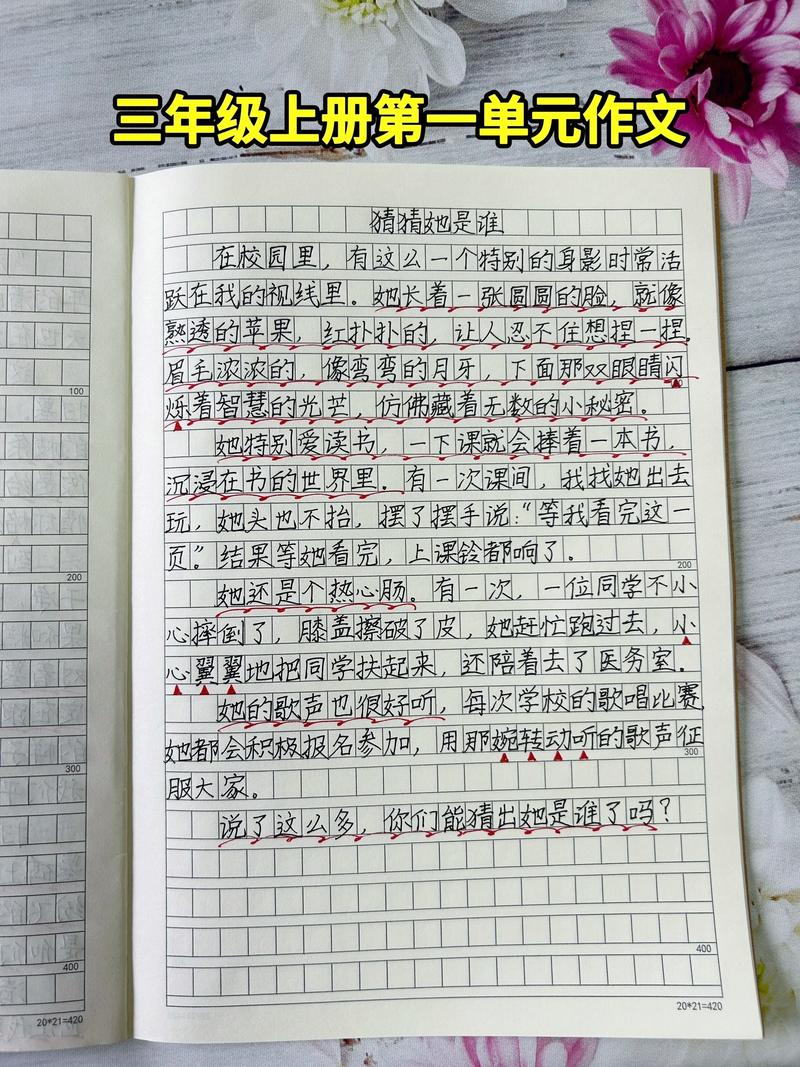 三年级上册第一单元作文
猜猜她是谁
在校园里，有这么一个特别的身影时常活
跃在我的视线里。她长着一张圆圆的脸，就像
熟透的苹果，红扑扑的，让人忍不住想捏一捏。
眉毛浓浓的，像弯弯的月牙，下面那双眼睛闪
烁着智慧的光芒，仿佛藏着无数的小秘密。
100
她特别爱读书，一下课就会捧着一本书，
沉浸在书的世界里。有一次课间，我找她出去
玩，她头也不抬，摆了摆手说：“等我看完这一
页。”结果等她看完，上课铃都响了。
200
她还是个热心肠。有一次，一位同学不小
心摔倒了，膝盖擦破了皮，她赶忙跑过去，小
心翼翼地把同学扶起来，还陪着去了医务室。
她的歌声也很好听，每次学校的歌唱比赛
她都会积极报名参加，用那婉转动听的歌声征
300
服大家。
说了这么多，你们能猜出她是谁了吗？
400
20*21=420
100
200
300
400
20*21=420